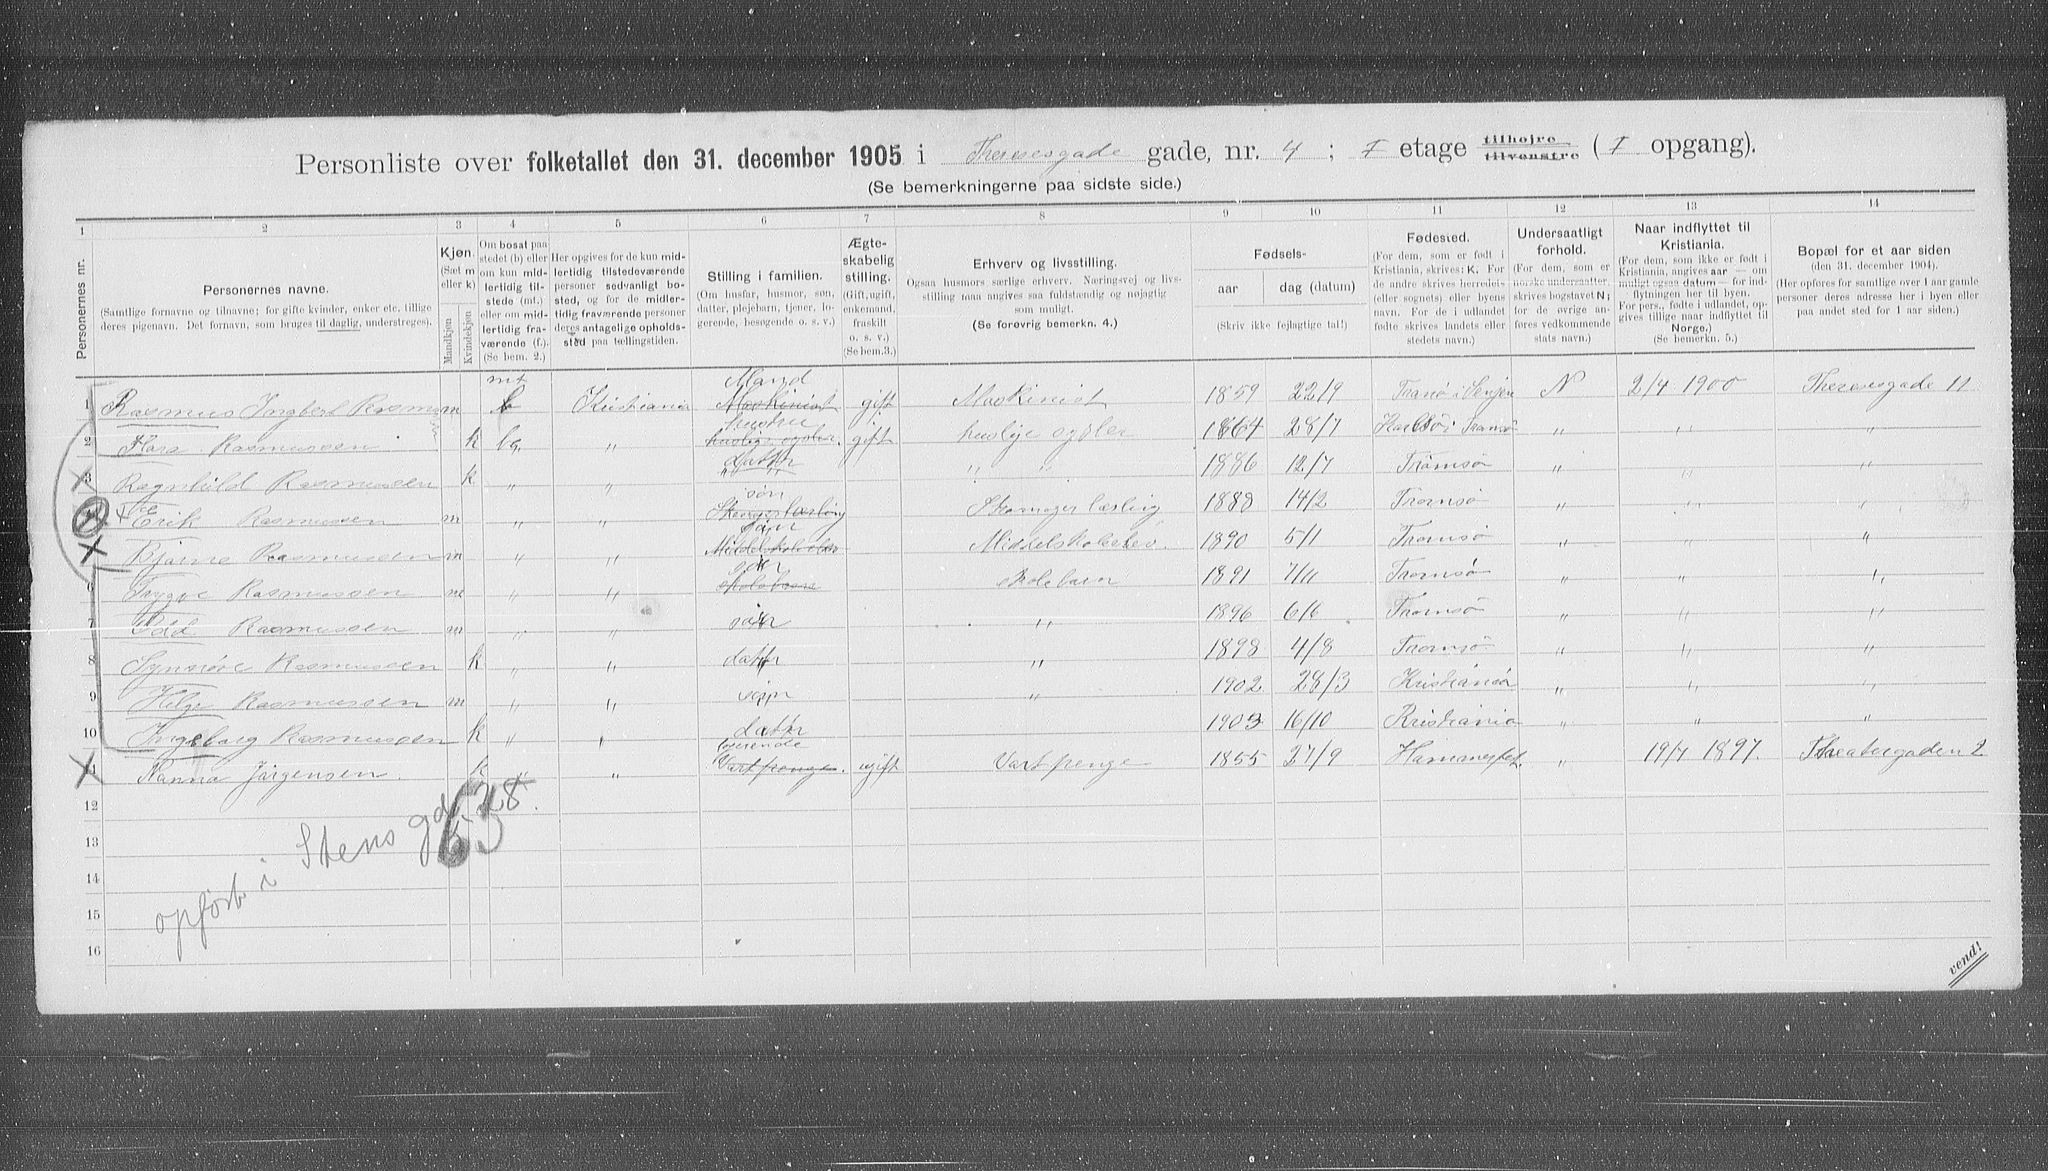 Personliste over folketallet den 31. december 1905 i Theresesgade gade, nr. 4 ; I etage tilhøjre tilvenstre ( I opgang).
(Se bemerkningerne paa sidste side.)
1 2 3 4 5 6 7 8 9 10 11 12 13 14
Personernes nr.
Personernes navne.
(Samtlige fornavne og tilnavne; for gifte kvinder, enker etc. tillige
deres pigenavn. Det fornavn, som bruges til daglig, understreges).
Kjøn.
(Sæt m
eller k)
Mandkjøn
Kvindekjøn
Om bosat paa
stedet (b) eller
om kun mid-
lertidig til-
stede (mt.)
eller om mid-
lertidig fra-
værende (f.).
(Se bem. 2.)
Her opgives for de kun mid-
lertidig tilstedeværende
personer sedvanligt bo-
sted, og for de midler-
tidig fraværende personer
deres antagelige opholds-
sted paa tællingstiden.
Stilling i familien.
(Om husfar, husmor, søn,
datter, plejebarn, tjener, lo-
gerende, besøgende o. s. v.)
Ægte-
skabelig
stilling.
(Gift, ugift,
enkemand,
fraskilt
o. s. v.)
(Se bem.3.)
Erhverv og livsstilling.
Ogsaa husmors særlige erhverv. Næringsvej og livs-
stilling maa angives saa fuldstændig og nøjagtig
som muligt.
(Se forøvrig bemerkn. 4.)
Fødsels-
aar dag (datum)
(Skriv ikke fejlagtige tal!)
Fødested.
(For dem, som er født i
Kristiania, skrives: K. For
de andre skrives herredets
(eller sognets) eller byens
navn. For de i udlandet
fødte skrives landets eller
stedets navn.)
Undersaatligt
forhold.
(For dem, som er
norske undersaatter,
skrives bogstavet N;
for de øvrige an-
føres vedkommende
stats navn.)
Naar indflyttet til
Kristiania.
(For dem, som ikke er født i
Kristiania, angives aar — om
muligt ogsaa datum — for ind-
flytningen her til byen.
For pers., fødte i udlandet, op-
gives tillige naar indflyttet til
Norge.)
(Se bemerkn. 5.)
Bopæl for et aar siden
(den 31. december 1904.)
(Her opføres for samtlige over 1 aar gamle
personer deres adresse her i byen eller
paa andet sted for 1 aar siden.)
mt Mand
1 Rasmus Ingbert Rasm m b Kristiania Maskinist gift Maskinist 1859 22/9 Tranö i Senjen N 2/4 1900 Theresesgade 11
hustru
2 Rasmussen k " gift huslye sysler 1864 28/7 Karlsö i Tromsö " " "
datter
3 Ragnhild Rasmussen k " " " " " 1886 12/7 Tromsö " " "
søn
4 Erik Rasmussen m " " 1888 14/2 Tromsö " " "
søn
5 Bjarne Rasmussen m " " Middelskoleelev. 1890 5/1 Tromsö " " "
søn
6 Trygve Rasmussen m " " skolebarn skolebarn 1891 7/11 Tromsö " " "
7 Odd Rasmussen m " " søn " 1896 6/6 Tromsö " " "
8 Synnöve Rasmussen k " " datter " 1898 4/8 Tromsö " " "
9 Helge Rasmussen m " " søn " 1902 28/3 Kristiania " " "
10 Ingeborg Rasmussen k " " datter 1903 16/10 Kristiania " " "
logerende
11 Nanna Jörgensen. k " " Vartpenge. ugift Vartpenge 1855 27/9 " 19/7 1897. Theatergaden 2
12
13
14
15
16
opført i Stensgd.
63
vend!